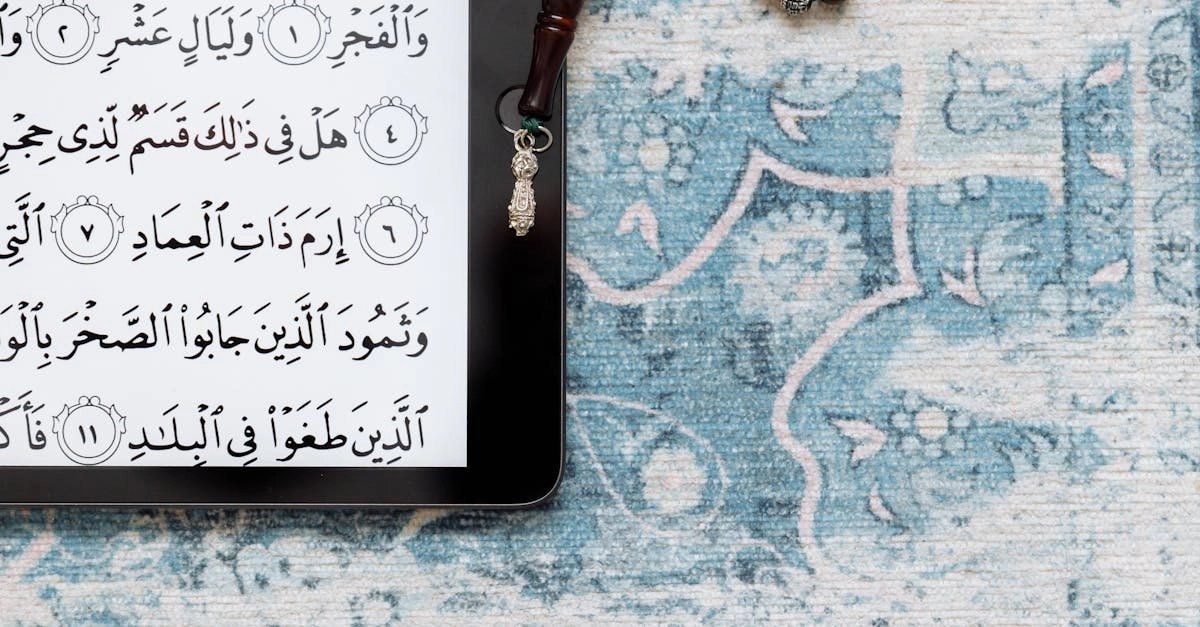 وَٱلۡفَجۡرِ ١ وَلَيَالٍ عَشۡرٖ ٢
٤ هَلۡ فِي ذَٰلِكَ قَسَمٞ لِّذِي حِجۡرٍ
٦ إِرَمَ ذَاتِ ٱلۡعِمَادِ ٧ ٱلَّتِي
وَثَمُودَ ٱلَّذِينَ جَابُواْ ٱلصَّخۡرَ
ٱلَّذِينَ طَغَوۡاْ فِي ٱلۡبِلَٰدِ ١١